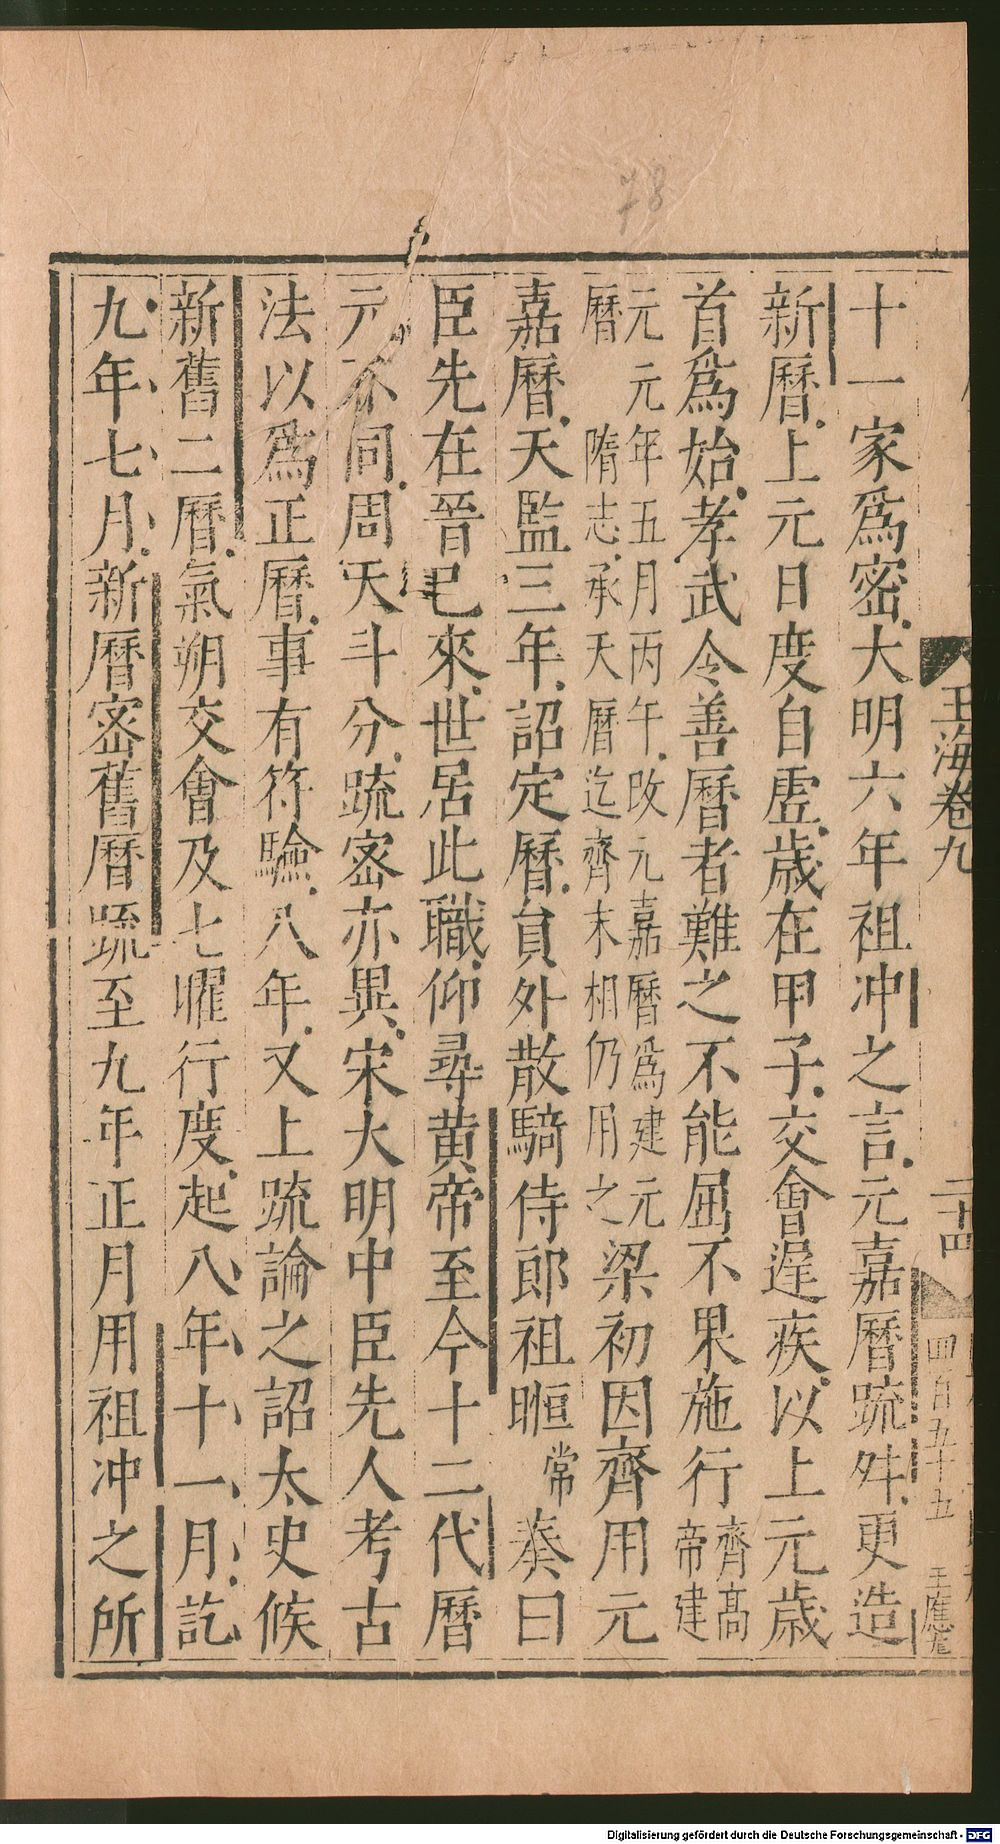 玉海卷九
二十四
四百五十五
十一家爲密大明六年祖冲之言元嘉曆踈舛更造
新曆上元日度自虛歲在甲子交會遲疾以上元歲
首爲始孝武令善曆者難之不能屈不果施行齊高帝建
元元年五月丙午改元嘉曆爲建元曆隋志承天曆迄齊末相仍用之梁初因齊用元
嘉曆天監三年詔定曆員外散騎侍郎祖暅常奏曰
臣先在晉已來世居此職仰尋黄帝至今十二代曆
元不同周天斗分踈密亦異宋大明中臣先人考古
法以爲正曆事有符驗八年又上踈論之詔太史候
新舊二曆氣朔交會及七曜行度起八年十一月訖
九年七月新曆密舊曆踈至九年正月用祖冲之所
78
Digitalisierung gefördert durch die Deutsche Forschungsgemeinschaft - DFG